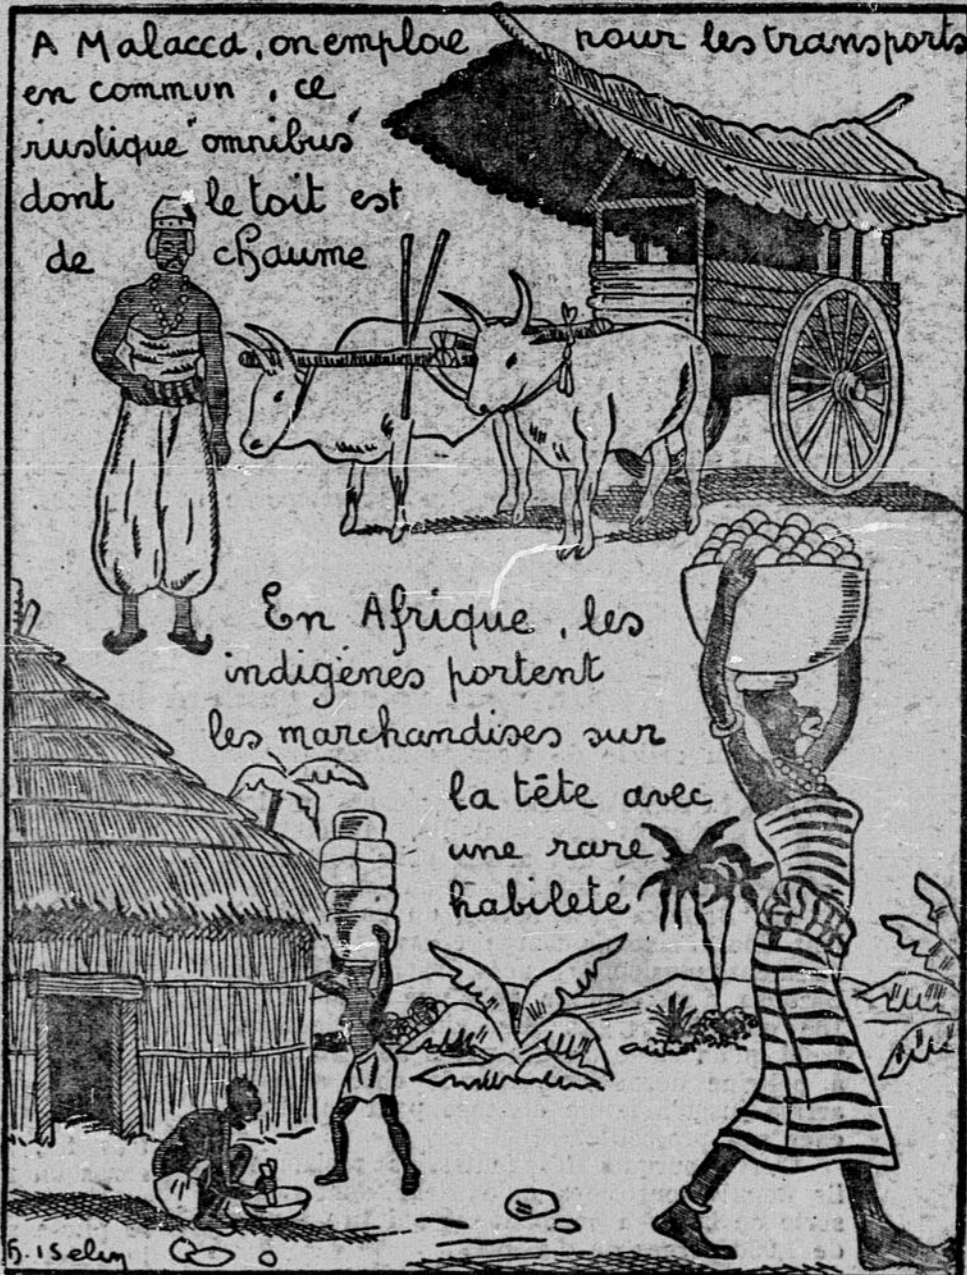 A Malacca, on emploie pour les transports
en commun, ce
rustique "omnibus"
dont le toit est
de chaume
En Afrique, les
indigènes portent
les marchandises sur
la tête avec
une rare
habileté
h. Iselin